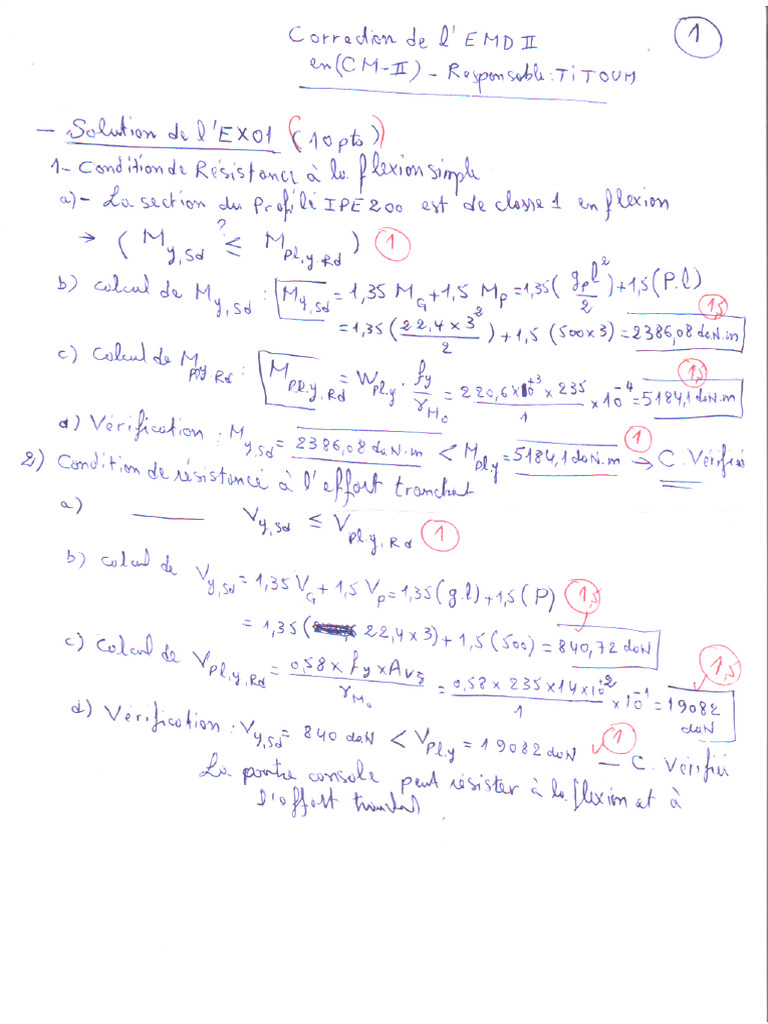 1
Correction de l'EMD II
en (CM-II) - Responsable: TiTOUM
- Solution de l'EX01 (10pts)
1- Condition de Résistance à la flexion simple
a) - La section du Profilé IPE 200 est de classe 1 en flexion
→ ( M y,Sd ≤? M pl.y.Rd ) 1
b) calcul de M y,Sd : M y,Sd = 1,35 M G + 1,5 M P = 1,35( g p l² / 2 ) + 1,5 (P.l)
= 1,35 ( 22,4 x 3² / 2 ) + 1,5 (500 x 3) = 2386,08 daN.m 1,5
c) Calcul de M pl.y.Rd : M pl.y.Rd = W pl.y . fy / γ M0 = 220,6 x 10^+3 x 235 / 1 x 10^-4 = 5184,1 daN.m 1,5
d) Vérification : M y,Sd = 2386,08 daN.m < M pl.y = 5184,1 daN.m → C. Vérifié 1
2) Condition de résistance à l'effort tranchat
a) V y,Sd ≤ V pl.y.Rd 1
b) Calcul de V y,Sd = 1,35 V G + 1,5 V P = 1,35 (g.l) + 1,5 (P) 1,5
= 1,35 ( 22,4 x 3) + 1,5 (500) = 840,72 daN
c) Calcul de V pl.y.Rd = 0,58 x fy x Avz / γ M0 = 0,58 x 235 x 14 x 10^+2 / 1 x 10^-1 = 19082 daN 1,5
d) Vérification : V y,Sd = 840 daN < V pl.y = 19082 daN — C. Vérifié 1
La poutre console peut résister à la flexion et à
l'effort tranchat